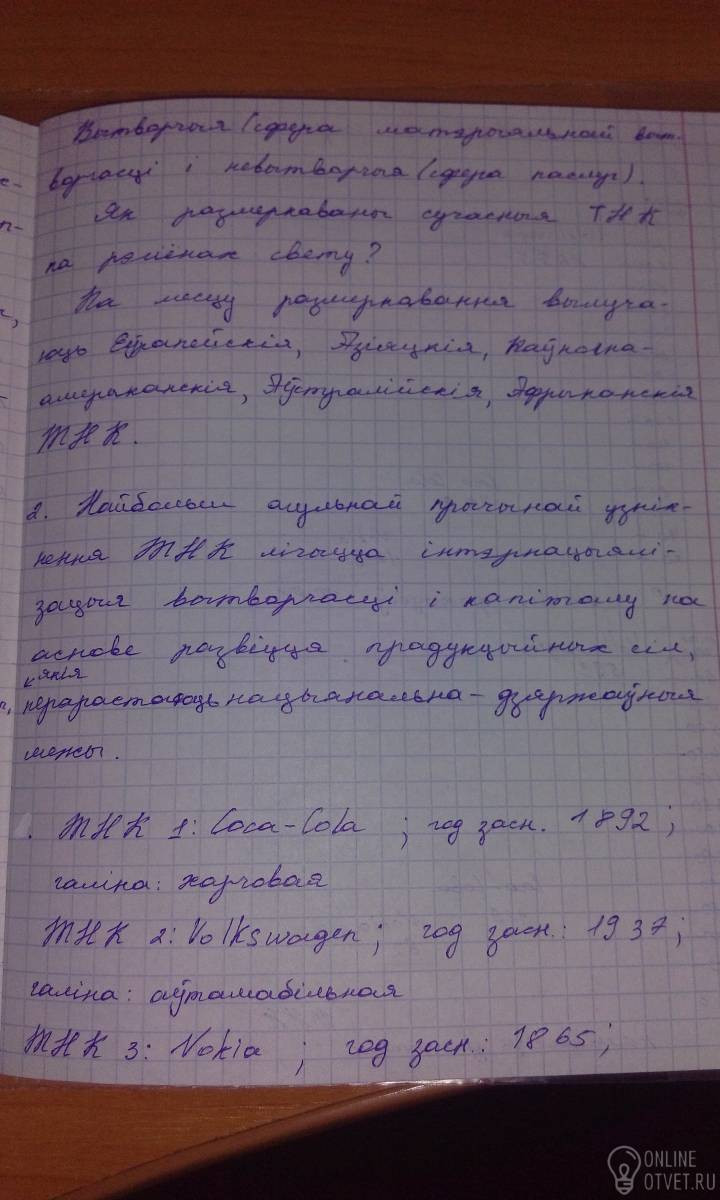 Вытворчыя (сфера матэрыяльнай выт-
ворчасці і невытворчыя (сфера паслуг).
Як размеркаваны сучасныя ТНК
па рэгіёнах свету?
Па месцу размеркавання вылуча-
юць Еўрапейскія, Азіяцкія, Паўночна-
амерыканскія, Аўстралійскія, Афрыканскія
ТНК.
2. Найбольш агульнай прычынай узнік-
нення ТНК лічыцца інтэрнацыялі-
зацыя вытворчасці і капіталу на
аснове развіцця прадукцыйных сіл,
якія
перарастаюць нацыянальна-дзяржаўныя
межы.
ТНК 1: Coca-Cola ; год засн. 1892;
галіна: харчовая
ТНК 2: Volkswagen; год засн.: 1937;
галіна: аўтамабільная
ТНК 3: Nokia ; год засн.: 1865;
ONLINE
OTVET.RU